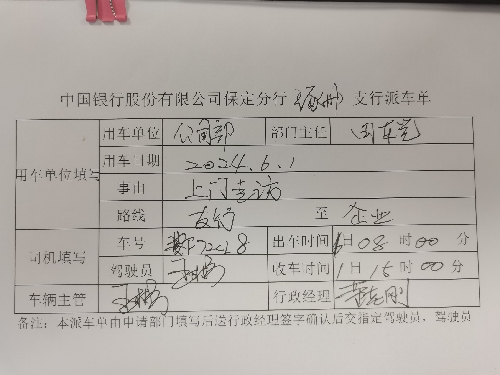 中国银行股份有限公司保定分行 涿州 支行派车单
用车单位填写 用车单位 公司部 部门主任
用车日期 2024.6.1
事由 上门走访
路线 支行 至 企业
司机填写 车号 出车时间 1日 08 时 00 分
驾驶员 收车时间 1日 15 时 00 分
车辆主管 行政经理
备注：本派车单由申请部门填写后送行政经理签字确认后交指定驾驶员，驾驶员